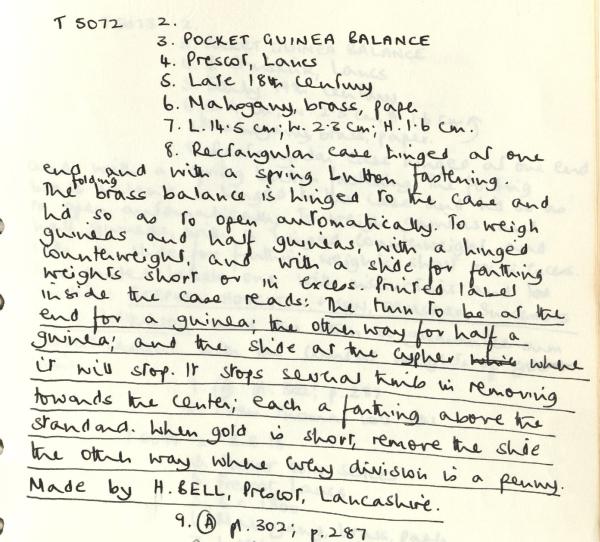 T 5072 2.
3. POCKET GUINEA BALANCE
4. Prescot, Lancs
5. Late 18th century
6. Mahogany, brass, paper
7. L. 14.5 cm; W. 2.2 cm; H. 1.6 cm.
8. Rectangular case hinged at one
end and with a spring button fastening.
The folding brass balance is hinged to the case and
lid so as to open automatically. To weigh
guineas and half guineas, with a hinged
counterweight, and with a slide for farthing
weights short or in excess. Printed label
inside the case reads: The turn to be at the
end for a guinea; the other way for half a
guinea; and the slide at the cypher where
it will stop. It stops several times in removing
towards the center; each a farthing above the
standard. When gold is short, remove the slide
the other way where every division is a penny.
Made by H. BELL, Prescot, Lancashire.
9. (A) p. 302; p. 287